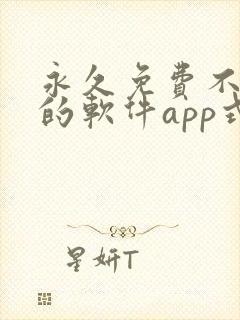 永久免費不
的軟件app式
星妍T